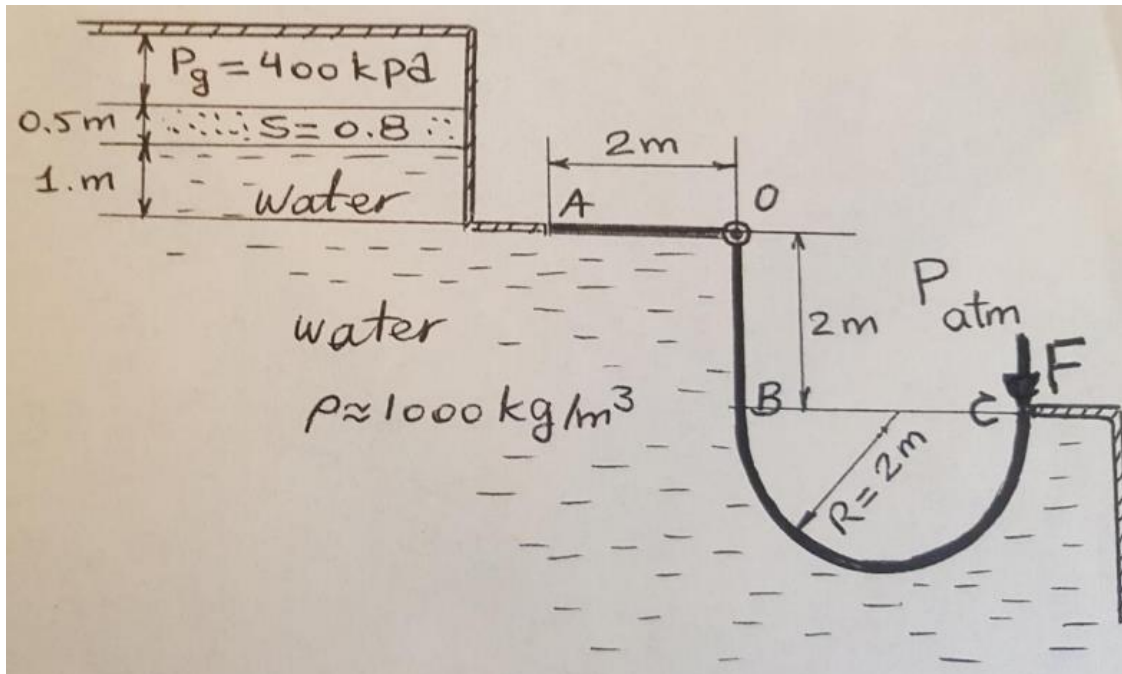 Pg = 400 kpa
0.5m
S = 0.8
1.m
water
2m
A
O
water
ρ ≈ 1000 kg/m³
2m
P atm
F
B
C
R = 2m